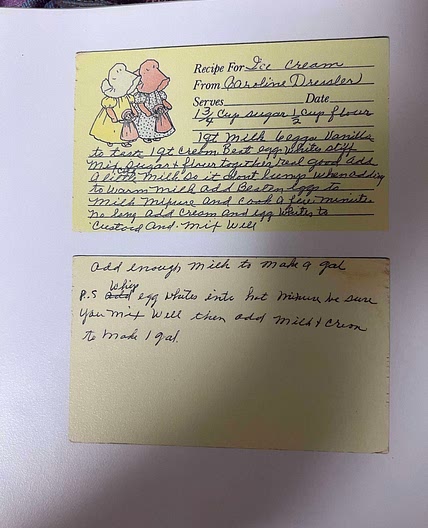 Recipe For Ice Cream
From Caroline Dressler
Serves Date
1 3/4 Cup sugar 1/2 cup flour
1 qt Milk 6 eggs Vanilla
to taste 1 qt Cream Beat egg white stiff
Mix Sugar & flour together real good add
a little Milk so it dont lump when adding
to warm milk add Beaten Eggs to
Milk Mixure and Cook a few minutes
no long add Cream and egg whites to
Custard And Mix Well
add enough Milk to make a gal
Whip
P.S add egg whites into hot mixure be sure
you mix Well then add Milk & Cream
to Make 1 gal.